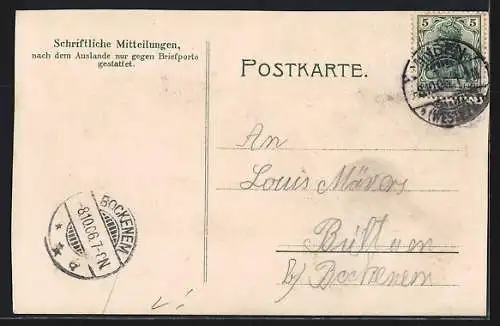 Schriftliche Mitteilungen,
nach dem Auslande nur gegen Briefporto
gestattet.
POSTKARTE.
5 5
MINDEN
(WESTF.)
An
Louis Mävers
Bültum
b/ Bockenem
BOCKENEM
8.10.06.7-8N.